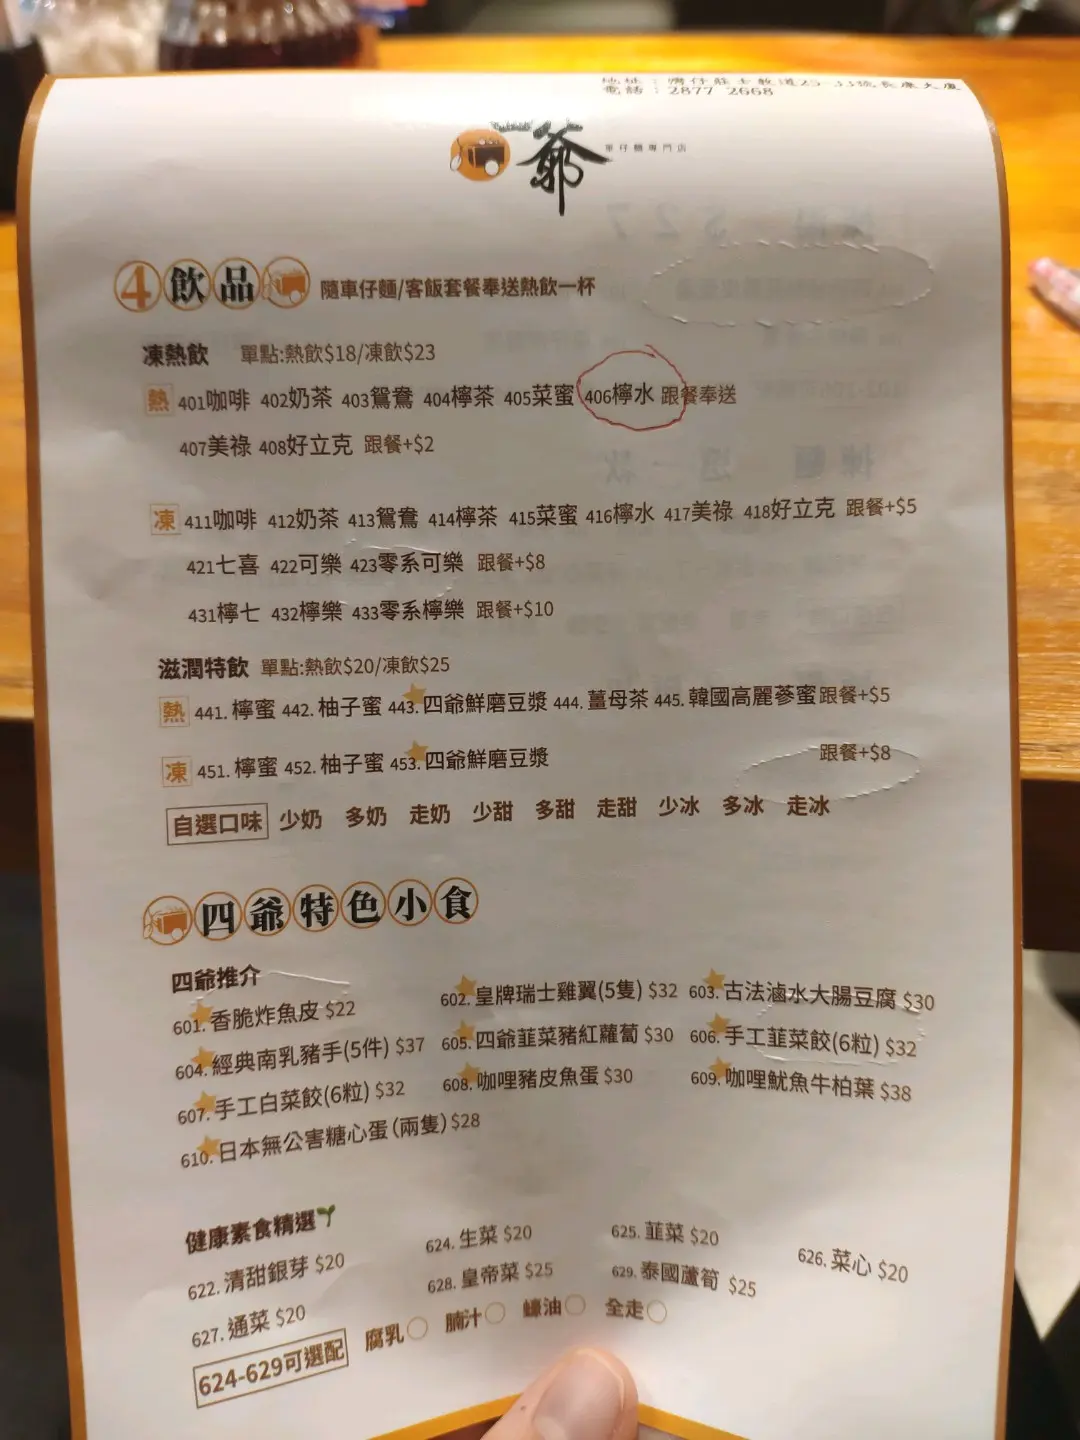 地址：灣仔莊士敦道25-33號長康大廈
電話：2877 2668
爺 車仔麵專門店
4 飲品 隨車仔麵/客飯套餐奉送熱飲一杯
凍熱飲 單點:熱飲$18/凍飲$23
熱 401咖啡 402奶茶 403鴛鴦 404檸茶 405菜蜜 406檸水 跟餐奉送
407美祿 408好立克 跟餐+$2
凍 411咖啡 412奶茶 413鴛鴦 414檸茶 415菜蜜 416檸水 417美祿 418好立克 跟餐+$5
421七喜 422可樂 423零系可樂 跟餐+$8
431檸七 432檸樂 433零系檸樂 跟餐+$10
滋潤特飲 單點:熱飲$20/凍飲$25
熱 441. 檸蜜 442. 柚子蜜 443. 四爺鮮磨豆漿 444. 薑母茶 445. 韓國高麗蔘蜜 跟餐+$5
凍 451. 檸蜜 452. 柚子蜜 453. 四爺鮮磨豆漿 跟餐+$8
自選口味 少奶 多奶 走奶 少甜 多甜 走甜 少冰 多冰 走冰
四爺特色小食
四爺推介
601. 香脆炸魚皮 $22 602. 皇牌瑞士雞翼(5隻) $32 603. 古法滷水大腸豆腐 $30
604. 經典南乳豬手(5件) $37 605. 四爺韮菜豬紅蘿蔔 $30 606. 手工韮菜餃(6粒) $32
607. 手工白菜餃(6粒) $32 608. 咖喱豬皮魚蛋 $30 609. 咖喱魷魚牛柏葉 $38
610. 日本無公害糖心蛋(兩隻) $28
健康素食精選
622. 清甜銀芽 $20 624. 生菜 $20 625. 韮菜 $20 626. 菜心 $20
627. 通菜 $20 628. 皇帝菜 $25 629. 泰國蘆筍 $25
624-629可選配 腐乳 腩汁 蠔油 全走